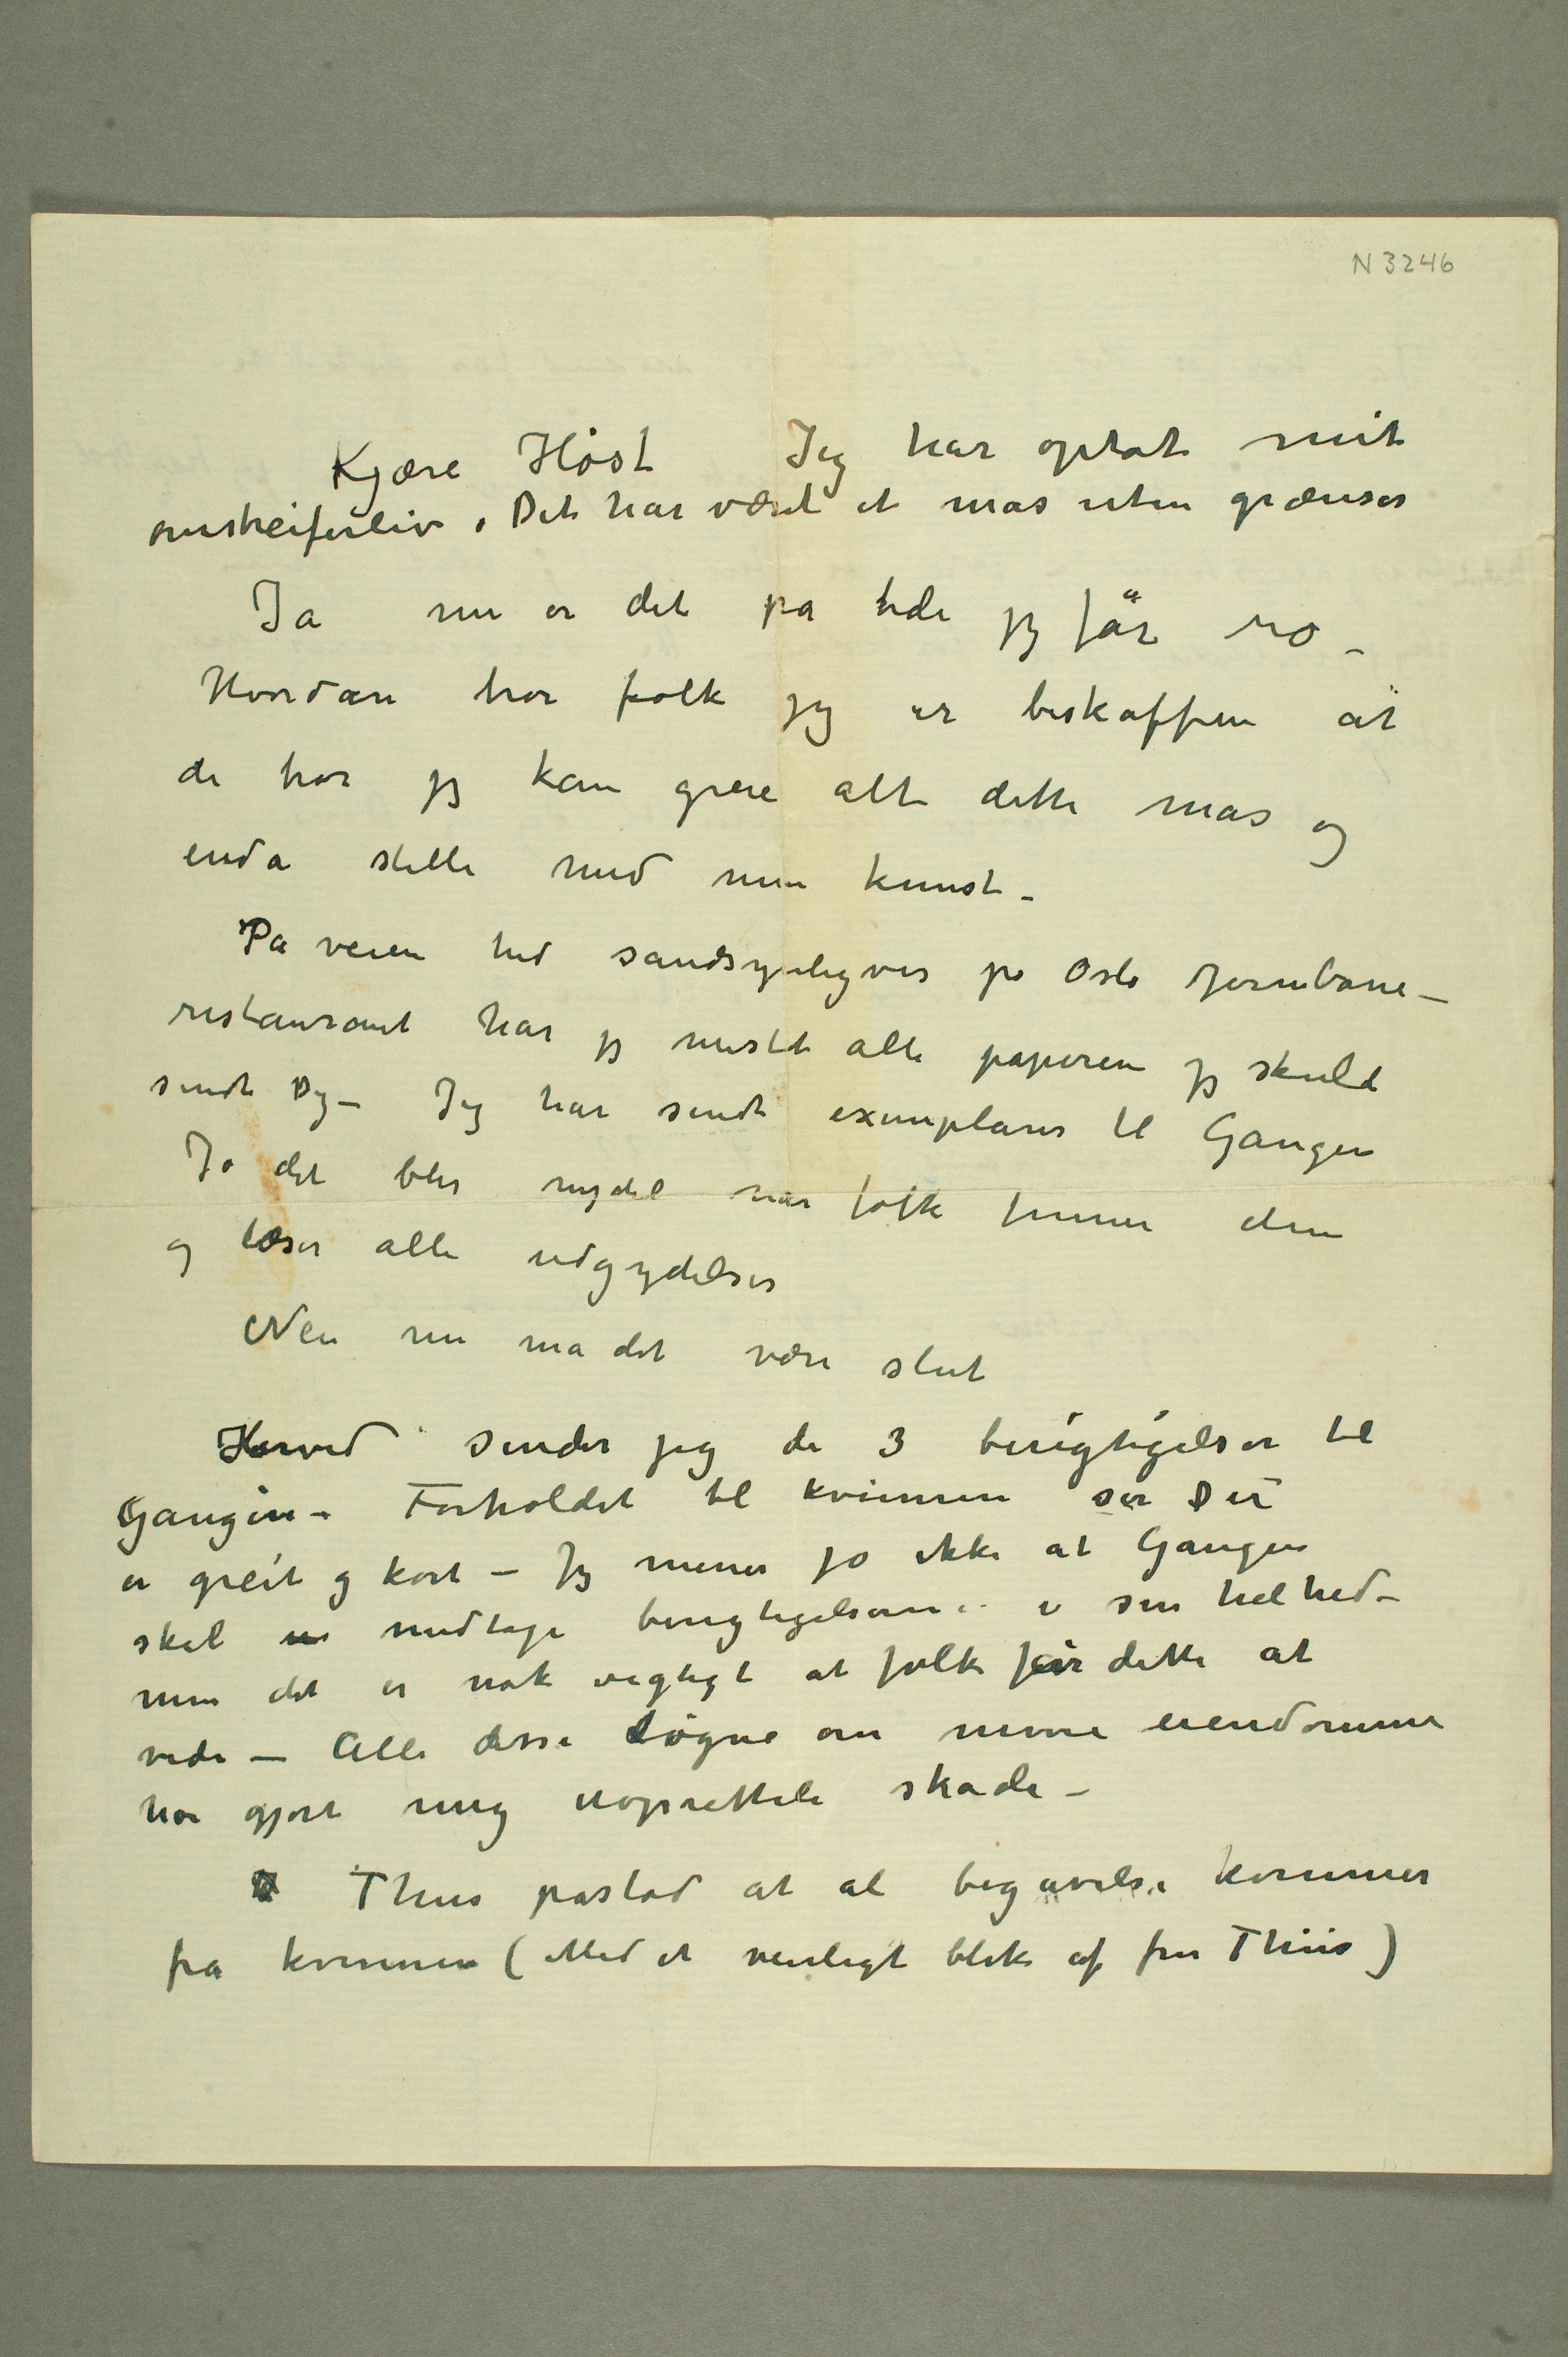 N 3246
Kjære Høst Jeg har optat mit
omstreiferliv. Det har været et mas uten grænser
Ja nu er det på tide jeg får ro –
Hvordan tror folk jeg er beskaffen at
de tror jeg kan greie alt dette mas og
enda stelle med min kunst –
På veien hid sandsynligvis på Oslo Jernbane–
restaurant har jeg mistet alle papirene jeg skuld
sendt Dig – Jeg har sendt exemplarer til Gaugen
Jo det blir nydel når folk finner dem
og læser alle udgydelser
Nei nu må det være slut
Herved sender jeg de 3 berigtigelser til
Gaugin – Forholdet til kvinnen ser Du
er greit og kort – Jeg mener jo ikke at Gaugen
skal medtage berigtigelserne i sin helhed –
men det er nok vigtigt at folk får dette at
vide – Alle disse Løgne om mine eiendomme
har gjort mig uoprettele skade –
Thiis påstod at al begavelse kommer
fra kvinnen (Med et venligt blik af fru Thiis)